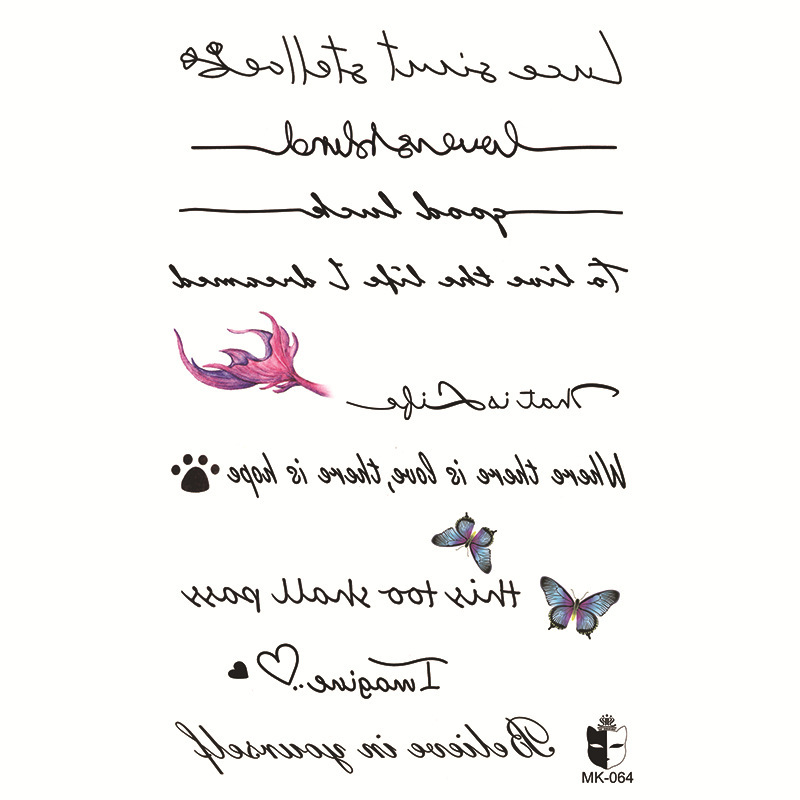 Luce sunt stellae
lovers blind
good luck
To live the life I dreamed
That is Life
Where there is love, there is hope
this too shall pass
Imagine..
Believe in yourself
MK-064